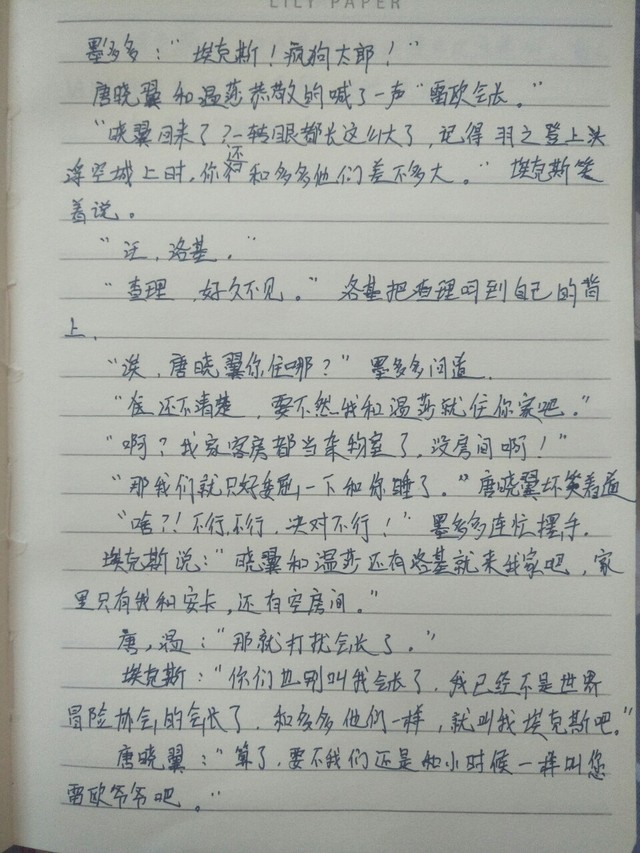 LILY PAPER
墨多多：“埃克斯！疯狗太郎！”
唐晓翼和温莎恭敬的喊了一声“雷欧会长。”
“晓翼回来了？一转眼都长这么大了，记得羽之登上
浮空城上时，你还和多多他们差不多大。”埃克斯笑
着说。
“汪，洛基。”
“查理，好久不见。”洛基把查理叼到自己的背
上．
“诶，唐晓翼你住哪？”墨多多问道．
“还不清楚，要不然我和温莎就住你家吧。”
“啊？我家客房都当杂物室了，没房间啊！”
“那我们就只好委屈一下和你睡了。”唐晓翼坏笑着道
“啥？！不行，不行，决对不行！”墨多多连忙摆手．
埃克斯说：“晓翼和温莎还有洛基就来我家吧，家
里只有我和安卡，还有空房间。”
唐，温：“那就打扰会长了。”
埃克斯：“你们也别叫我会长了，我已经不是世界
冒险协会的会长了，和多多他们一样，就叫我埃克斯吧。”
唐晓翼：“算了，要不我们还是和小时候一样叫您
雷欧爷爷吧。”